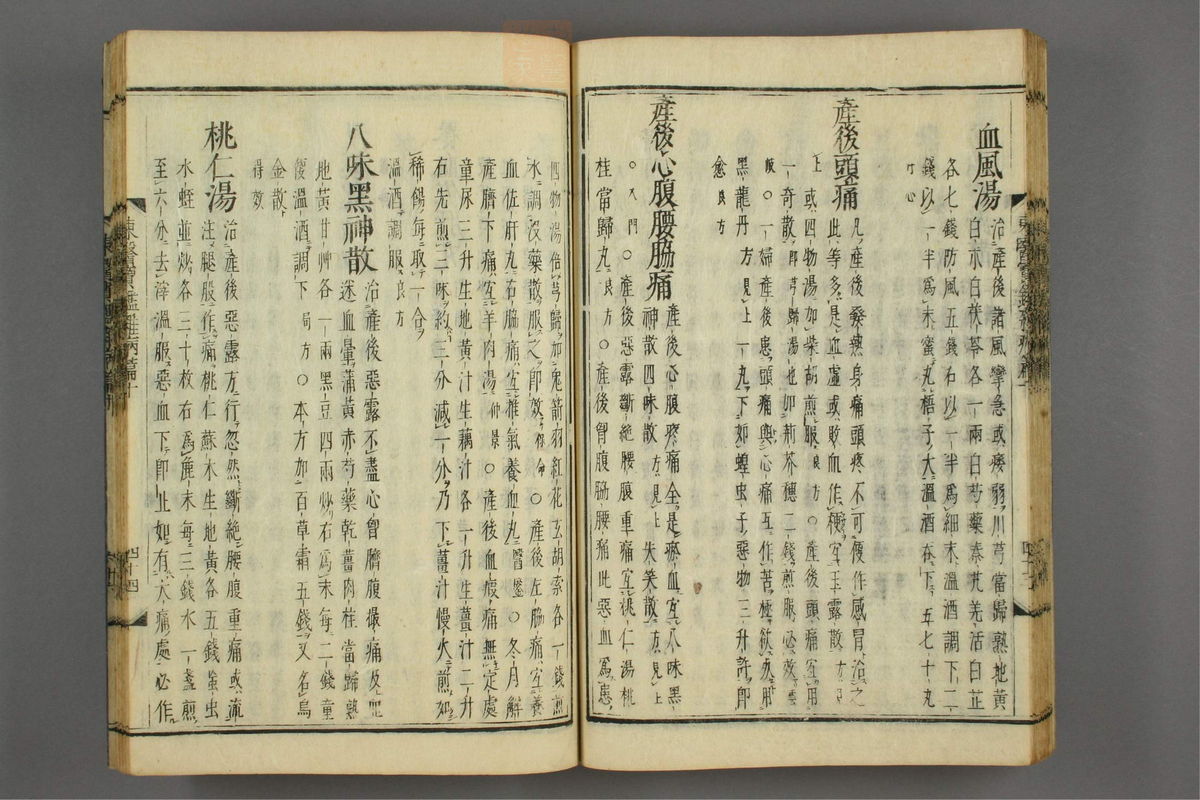 血風湯
治產後諸風攣急或痿弱川芎當歸熟地黃
白朮白茯苓各一兩白芍藥秦艽羌活白芷
各七錢防風五錢右以一半爲細末溫酒調下二
錢以一半爲末蜜丸梧子大溫酒吞下五七十丸
丁心
產後頭痛
凡產後發熱身痛頭疼不可便作感冒治之
此等多是血虛或敗血作梗宜玉露散方見
上或四物湯加柴胡煎服良方○產後頭痛宜用
一奇散卽芎歸湯也加荊芥穗二錢煎服必效雲
岐○一婦產後患頭痛與心痛互作苦極欲死用
黑龍丹方見上一丸下如蝗虫子惡物三升許卽
愈良方
產後心腹腰脇痛
產後心腹疼痛全是瘀血宜八味黑
神散四味散方見上失笑散方見上
○入門○產後惡露斷絶腰腹重痛宜桃仁湯桃
桂當歸丸良方○產後胷腹脇腰痛此惡血爲患
四物湯倍芎歸加鬼箭羽紅花玄胡索各一錢煎
水調沒藥散服之卽效保命○產後左脇痛宜養
血佐肝丸右脇痛宜推氣養血丸醫鑒○冬月解
產臍下痛宜羊肉湯仲景○產後血瘕痛無定處
童尿三升生地黃汁生藕汁各一升生薑汁二升
右先煎三味約三分減一分乃下薑汁慢火煎如
稀餳每取一合
溫酒調服良方
八味黑神散
治產後惡露不盡心胷臍腹撮痛及血
迷血暈蒲黃赤芍藥乾薑肉桂當歸熟
地黃甘艸各一兩黑豆四兩炒右爲末每二錢童
便溫酒調下局方○本方加百草霜五錢又名烏
金散
得效
桃仁湯
治產後惡露方行忽然斷絶腰腹重痛或流
注腿股作痛桃仁蘇木生地黃各五錢䖟虫
水蛭並炒各三十枚右爲麁末每三錢水一盞煎
至六分去滓溫服惡血下卽止如有大痛處必作